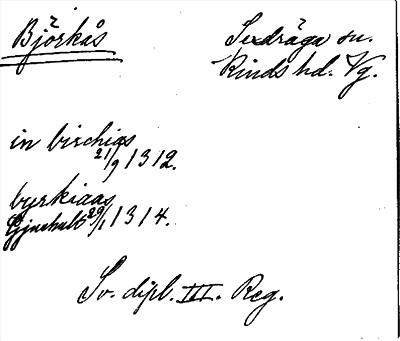 Björkås
Sexdräga sn.
Kinds hd. Vg.
in birchias
21/9 1312.
byrkiaas
29/1 1314.
Sv. dipl. III. Reg.